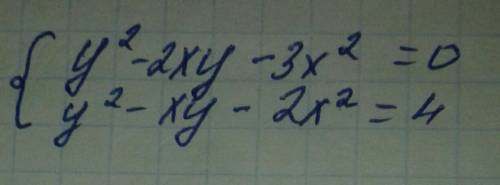 y² - 2xy - 3x² = 0
y² - xy - 2x² = 4